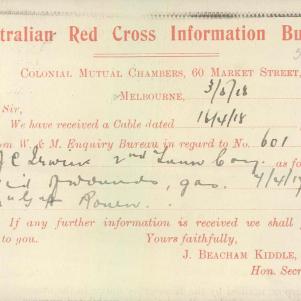 stralian Red Cross Information Bu
Colonial Mutual Chambers, 60 Market Street,
Melbourne, 3/5/18
Sir,
We have received a Cable dated 16/4/18
om W. & M. Enquiry Bureau in regard to No 601
J C 2nd Tunn Coy. as fo
wounds, gas. 4/4/18
Rouen.
If any further information is received we shall
to you. Yours faithfully,
J. Beacham Kiddle,
Hon. Secr